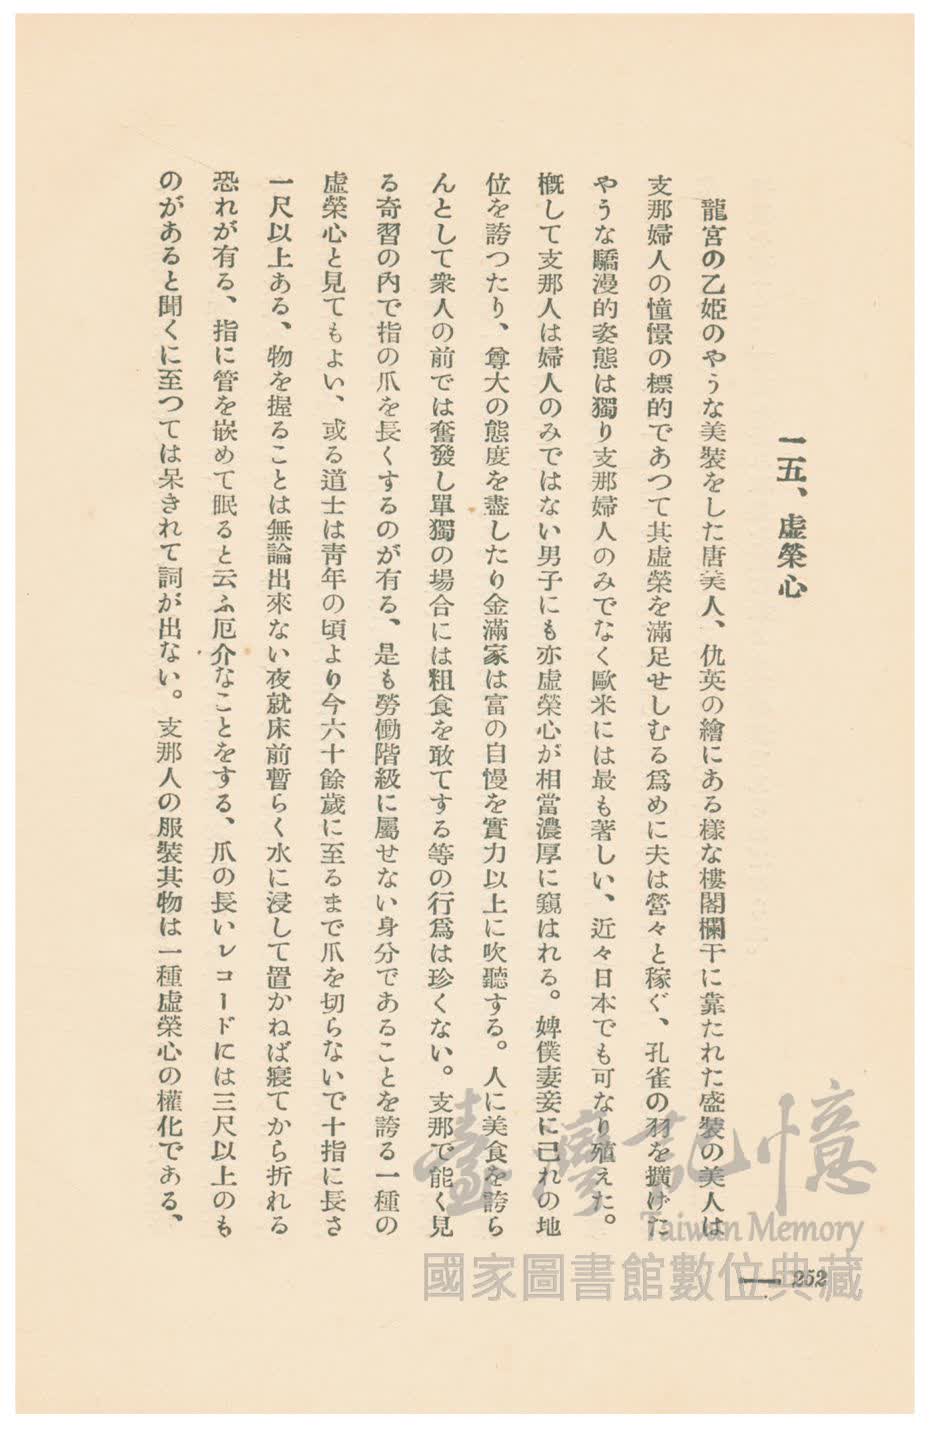 一五、虛榮心
龍宮の乙姬のやうな美裝をした唐美人、仇英の繪にある樣な樓閣欄干に靠たれた盛裝の美人は
支那婦人の憧憬の標的であつて其虛榮を滿足せしむる爲めに夫は營々と稼ぐ、孔雀の羽を擴げた
やうな驕漫的姿態は獨り支那婦人のみでなく歐米には最も著しい、近々日本でも可なり殖えた。
槪して支那人は婦人のみではない男子にも亦虛榮心が相當濃厚に窺はれる。婢僕妻妾に己れの地
位を誇つたり、尊大の態度を盡したり金滿家は富の自慢を實力以上に吹聽する。人に美食を誇ら
んとして衆人の前では奮發し單獨の場合には粗食を敢てする等の行爲は珍くない。支那で能く見
る奇習の內で指の爪を長くするのが有る、是も勞働階級に屬せない身分であることを誇る一種の
虛榮心と見てもよい、或る道士は靑年の頃より今六十餘歲に至るまで爪を切らないで十指に長さ
一尺以上ある、物を握ることは無論出來ない夜就床前暫らく水に浸して置かねば寢てから折れる
恐れが有る、指に管を嵌めて眠ると云ふ厄介なことをする、爪の長いレコードには三尺以上のも
のがあると聞くに至つては呆きれて詞が出ない。支那人の服裝其物は一種虛榮心の權化である、
252
臺灣記憶
Taiwan Memory
國家圖書館數位典藏